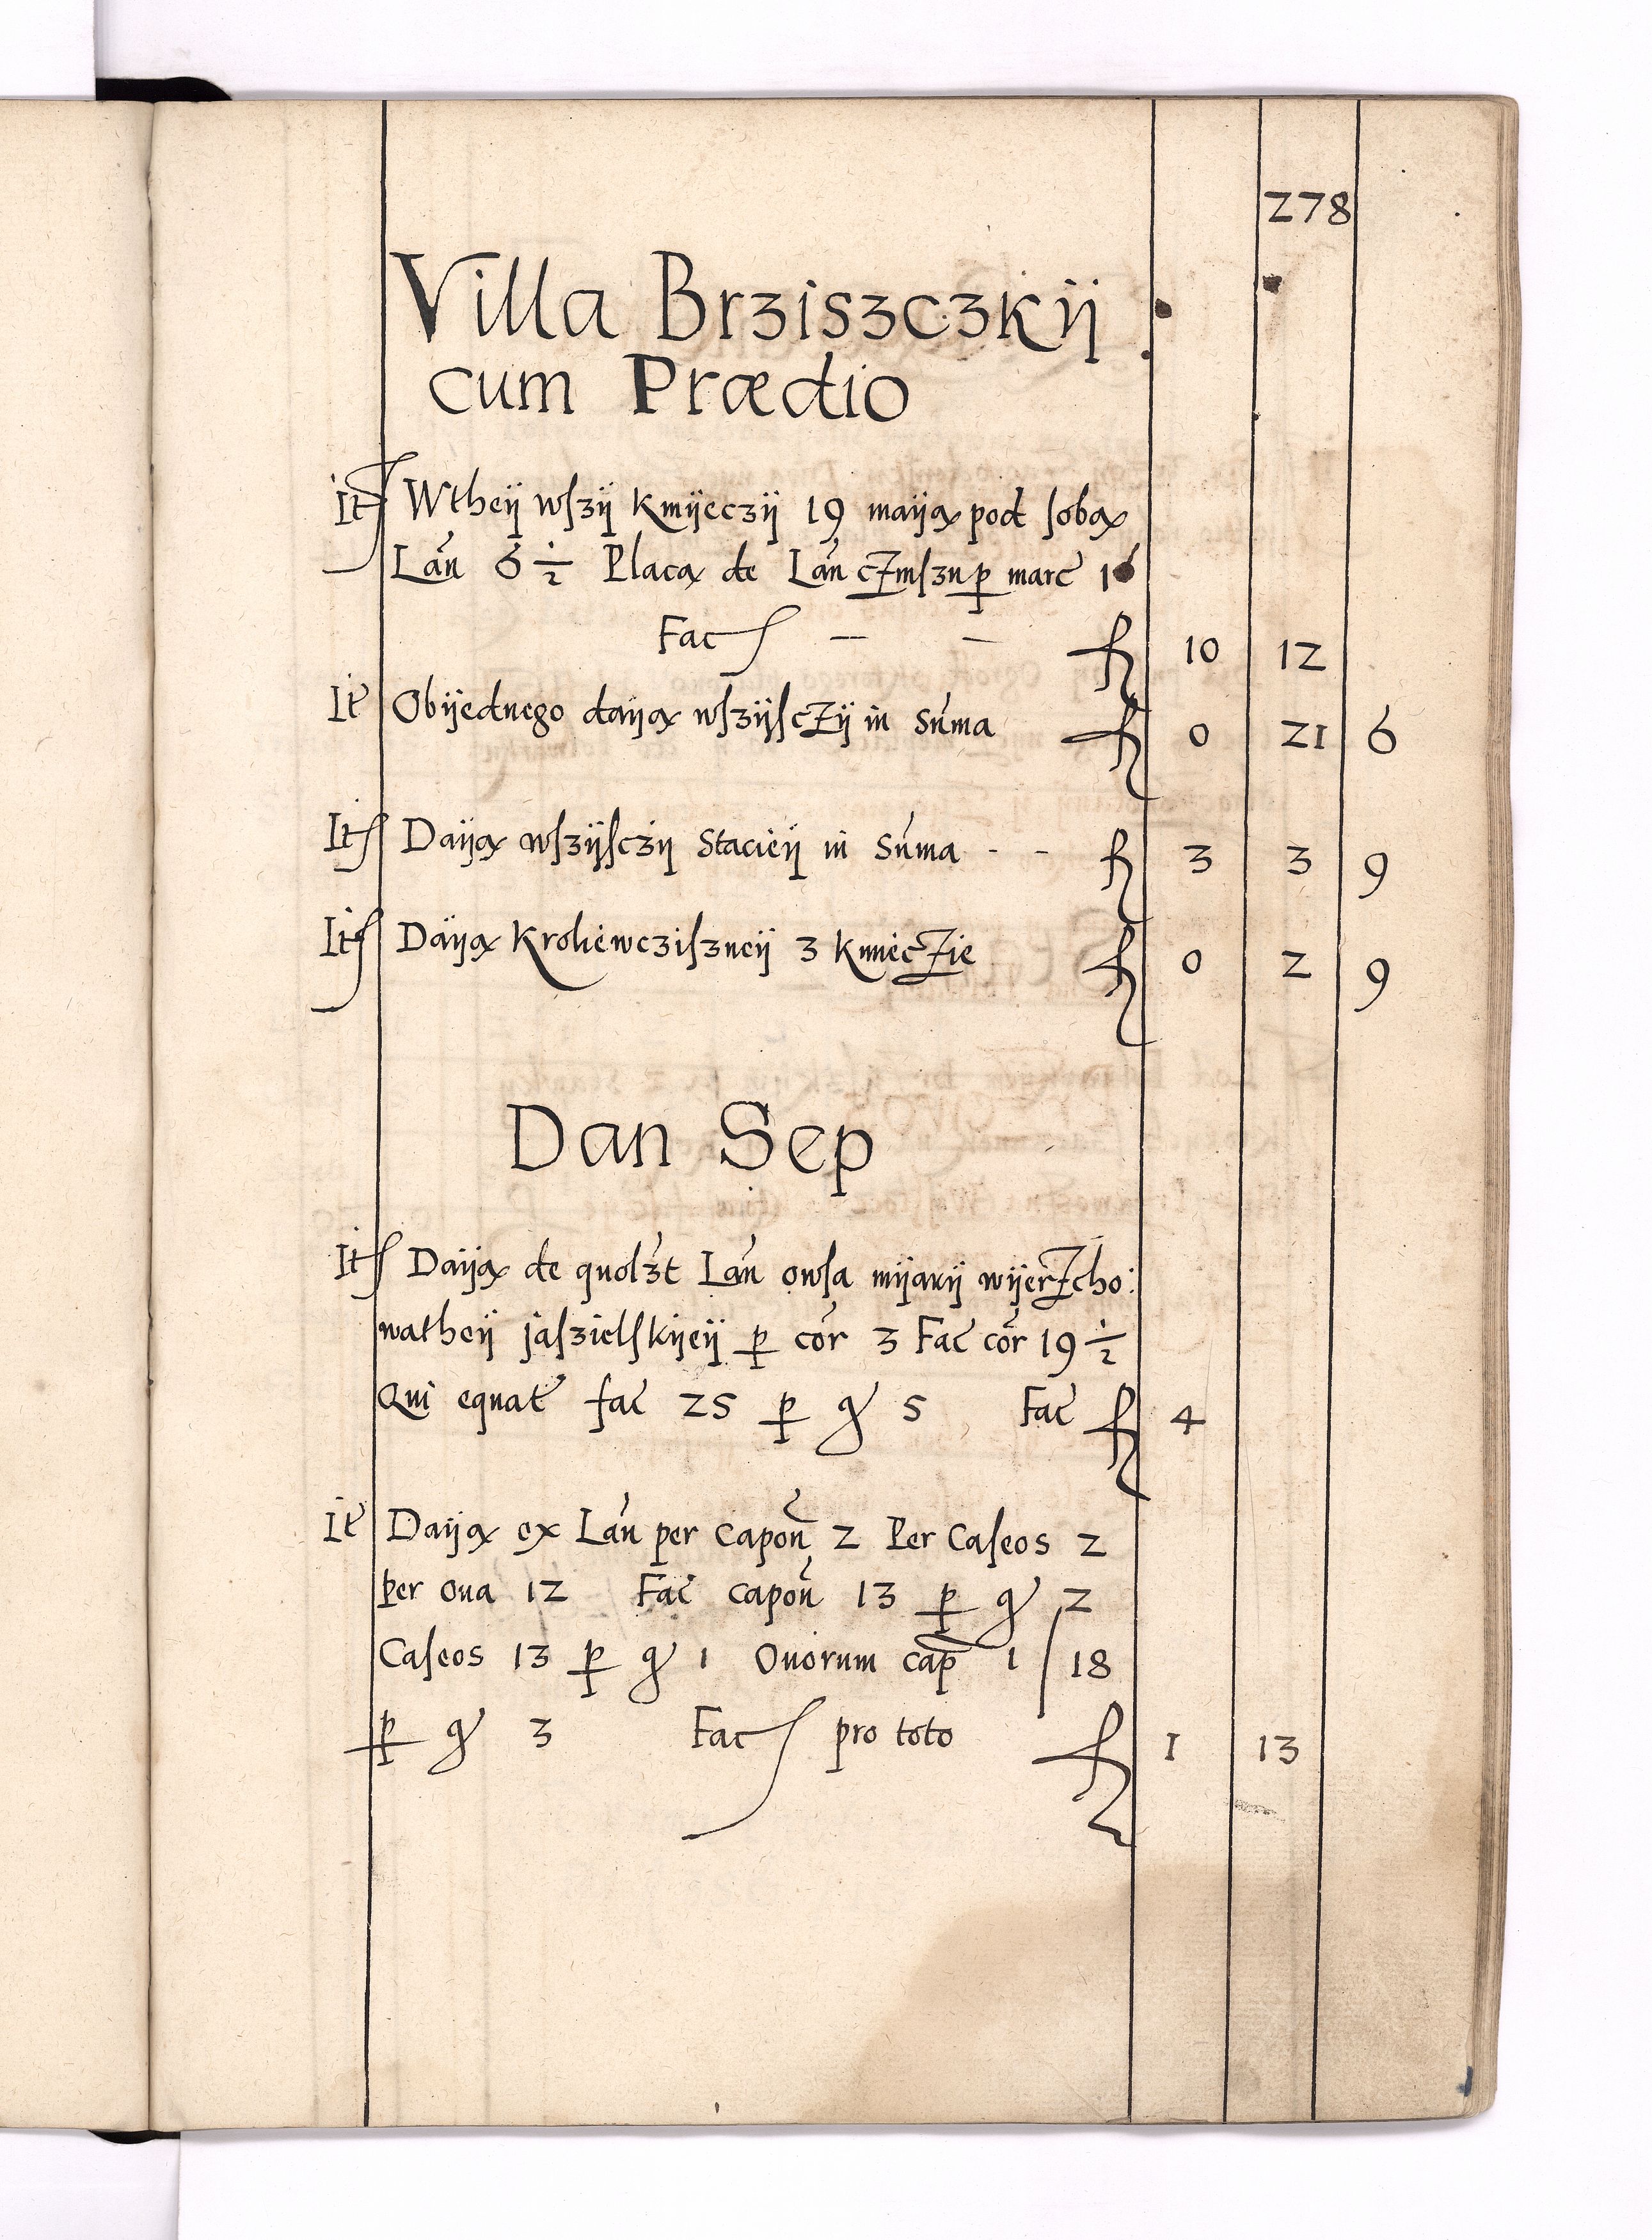 278
Villa Brziszczkij
cum Prædio
It Wtheij wſzij Kmijeczij 19 maiją pod ſobą
Lan 6 ½ Placą de Lan czinſzu p marc 16
Fac — — fl 10 12
It Obijednego daiją wſzijſczij in Suma fl 0 21 6
It Daiją wſzijſczij Stacieij in Suma - - fl 3 3 9
It Daiją Krolewcziſzneij 3 Kmieczie fl 0 2 9
Dan Sep
It Daiją de quolzt Lan owſa mijarij wijerzcho:
watheij jaſzielſkijeij p cor 3 Fac cor 19 ½
Qui equat fac 25 p g 5 Fac fl 4
It Daiją ex Lan per Capon 2 Per Caſeos 2
per oua 12 Fac capon 13 p g 2
Caſeos 13 p g 1 Ouorum cap 1 / 18
p g 3 Fac pro toto fl 1 13